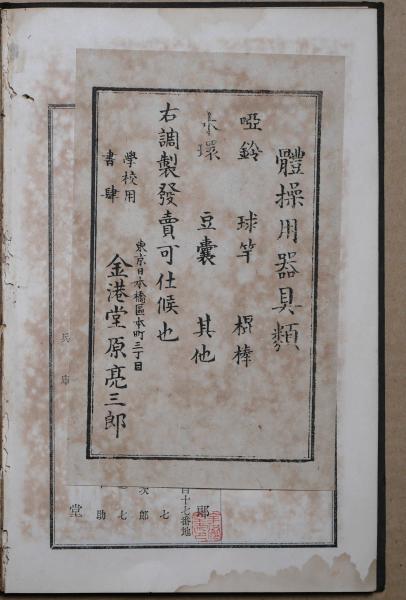 體操用器具類
啞鈴 球竿 棍棒
木環 豆嚢 其他
右調製發賣可仕候也
東京日本橋區本町三丁目
學校用
書肆
金港堂原亮三郎
兵庫
郎
百十七番地
七
次郎
七
助
堂